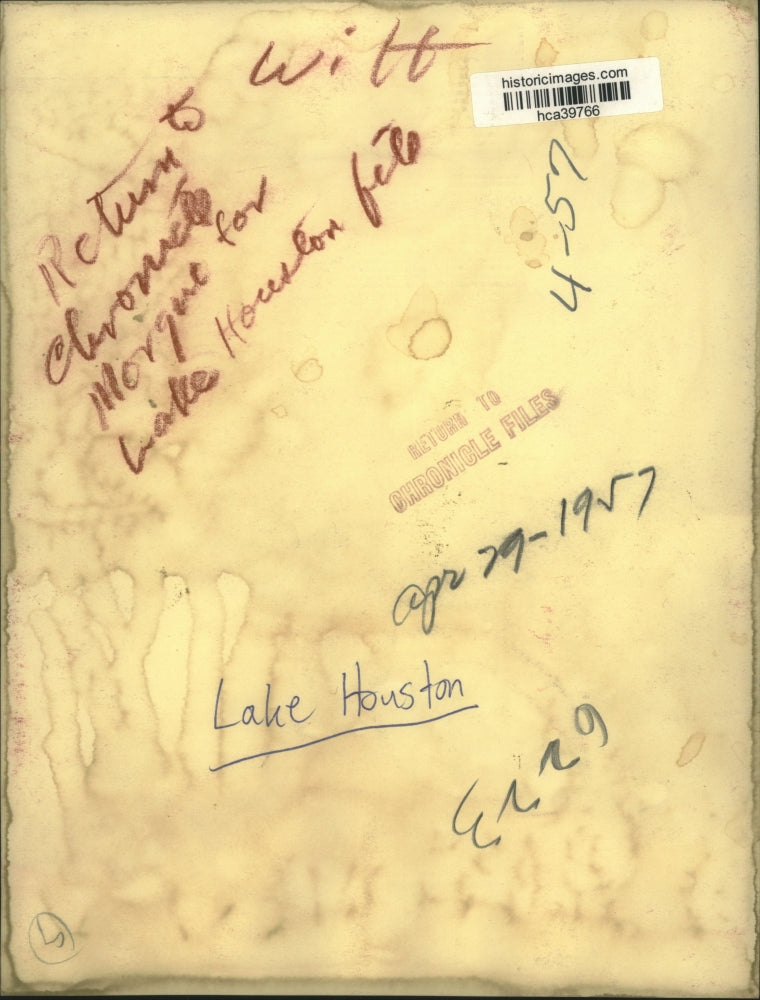 Witt
historicimages.com
hca39766
Return to
Chronicle
Morgue for
Lake Houston file
4-57
RETURN TO
CHRONICLE FILES
apr 29-1957
Lake Houston